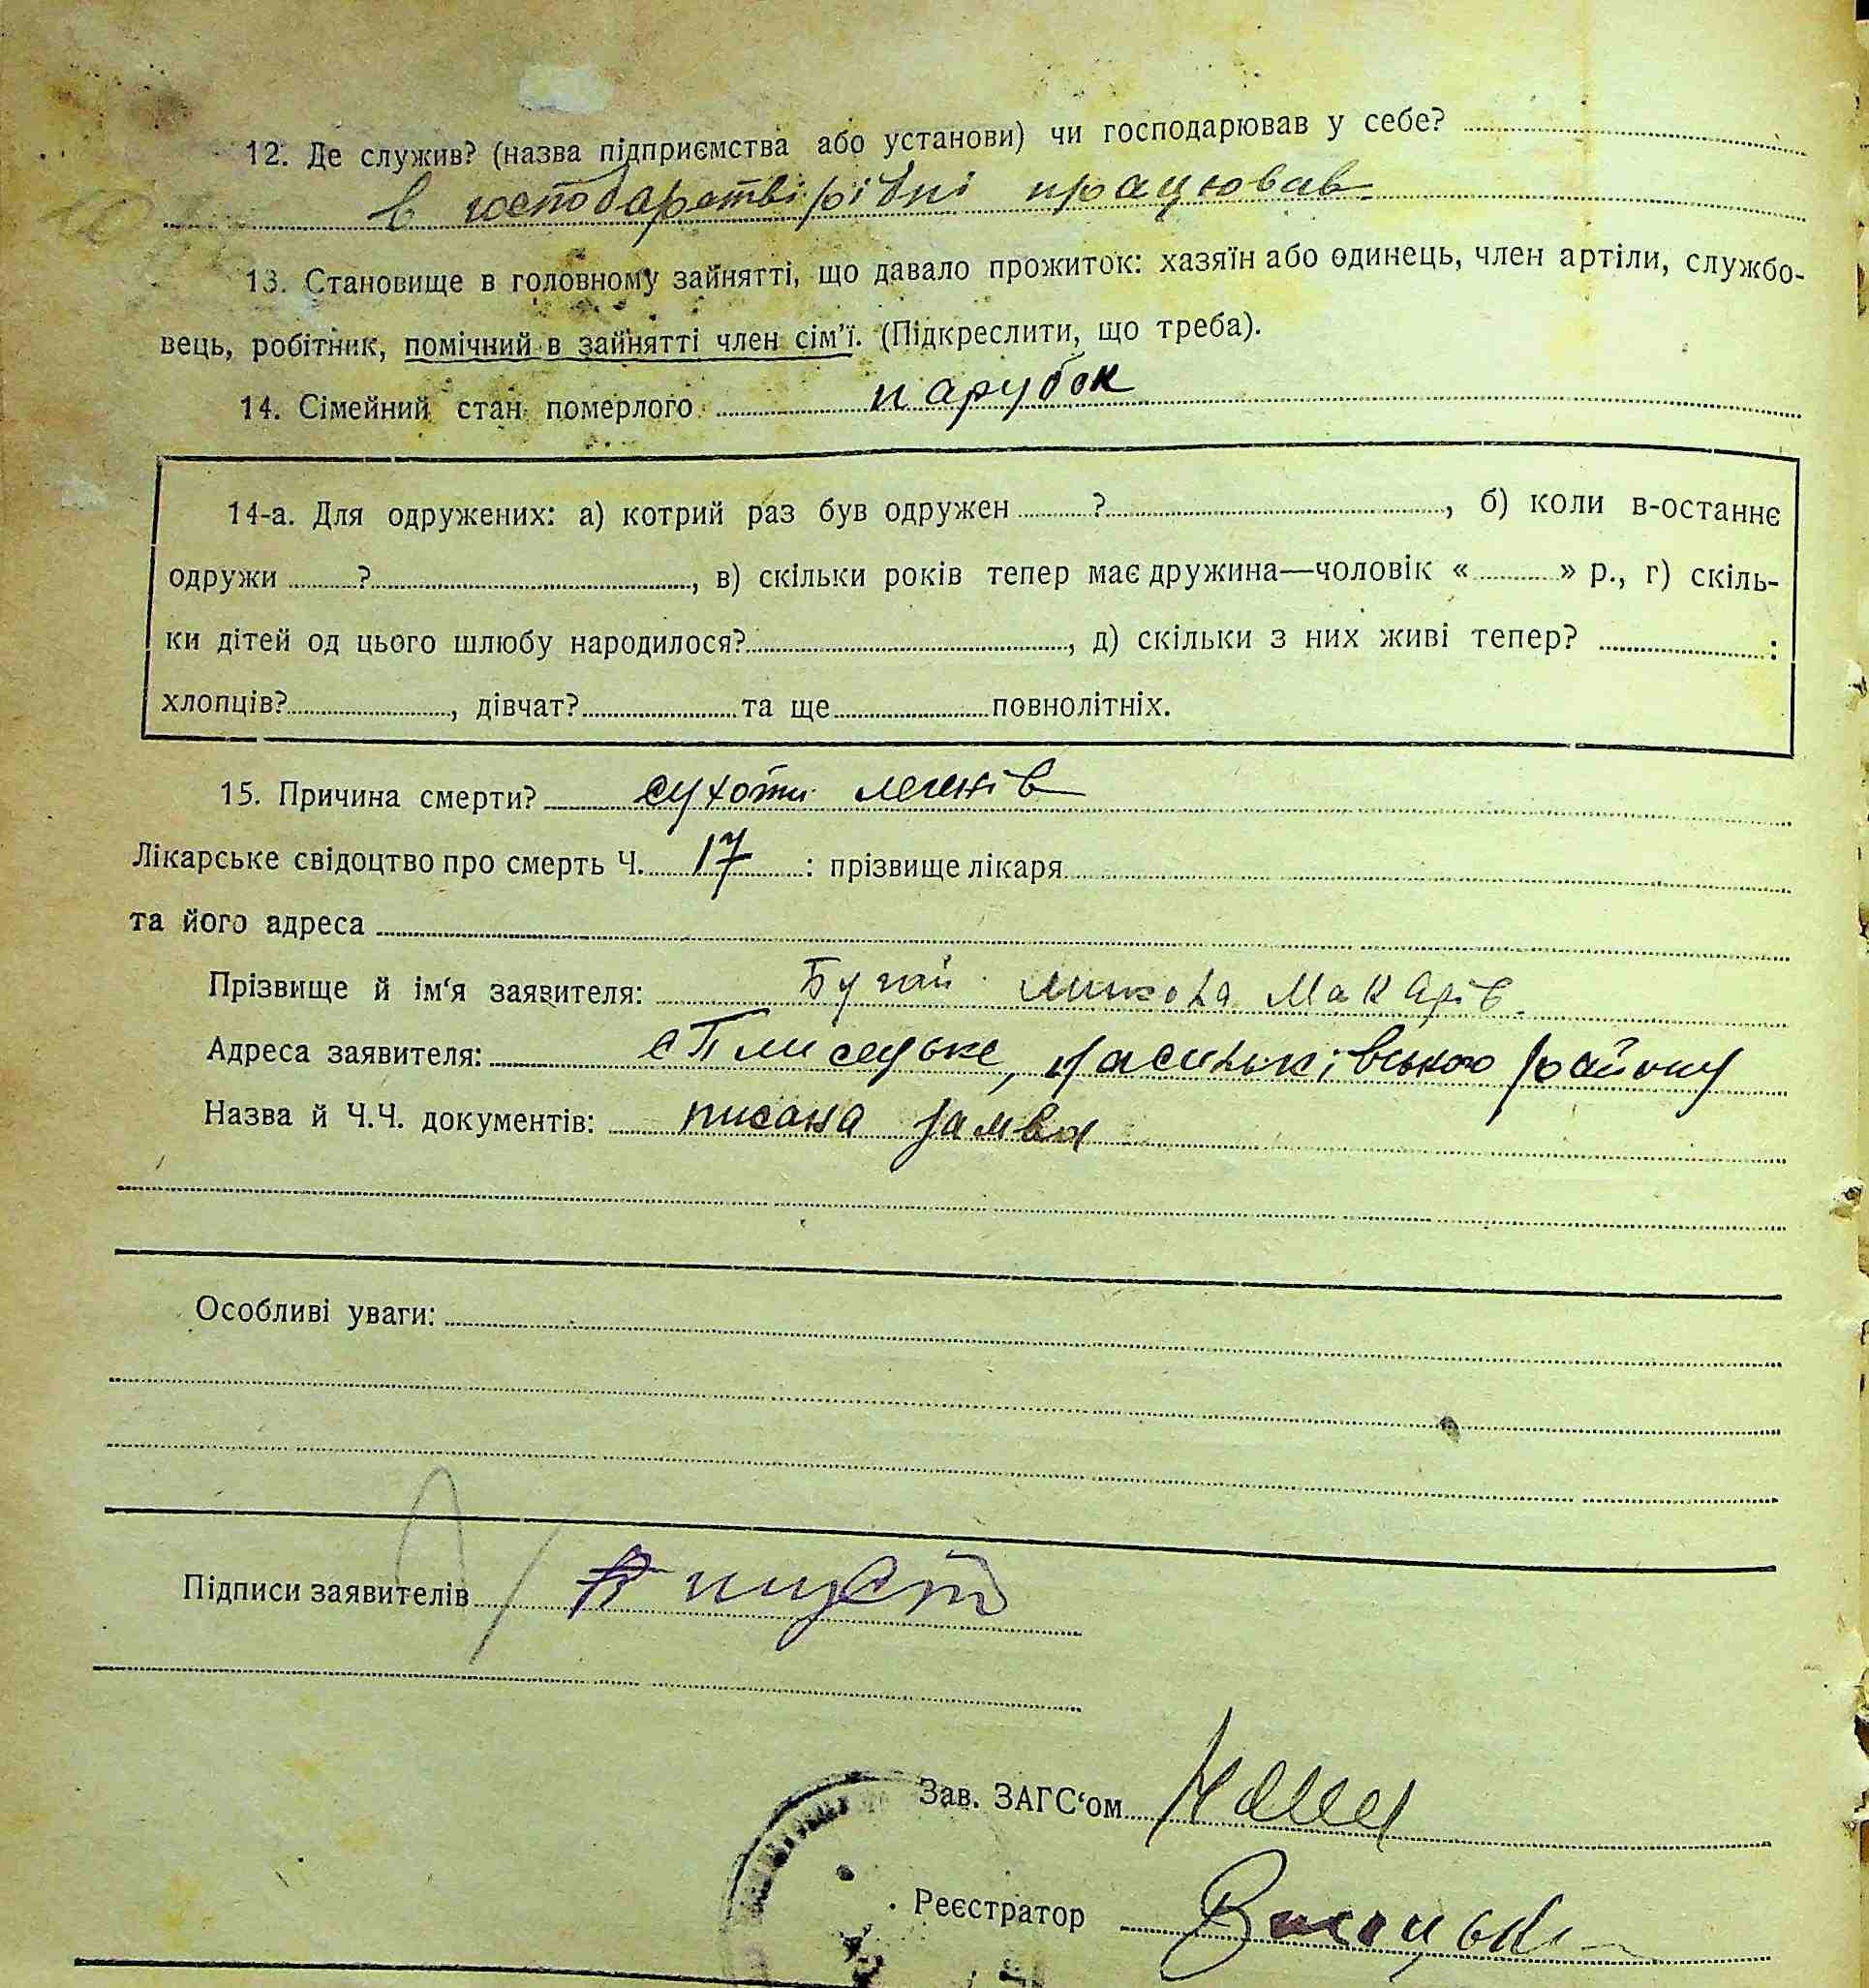 12. Де служив? (назва підприємства або установи) чи господарював у себе?
в господарстві рідні працював
13. Становище в головному зайнятті, що давало прожиток: хазяїн або одинець, член артіли, службо-
вець, робітник, помічний в зайнятті член сім'ї. (Підкреслити, що треба).
14. Сімейний стан померлого парубок
14-а. Для одружених: а) котрий раз був одружен ? , б) коли в-останнє
одружи ? , в) скільки років тепер має дружина—чоловік « » р., г) скіль-
ки дітей од цього шлюбу народилося? , д) скільки з них живі тепер? :
хлопців? , дівчат? та ще повнолітніх.
15. Причина смерти? сухоти легенів
Лікарське свідоцтво про смерть Ч. 17 : прізвище лікаря
та його адреса
Прізвище й ім'я заявителя: Бугай Микола Макарів
Адреса заявителя: с Плисецьке, Васильківського району
Назва й Ч.Ч. документів: писана заява
Особливі уваги:
Підписи заявителів
Зав. ЗАГС'ом
Реєстратор